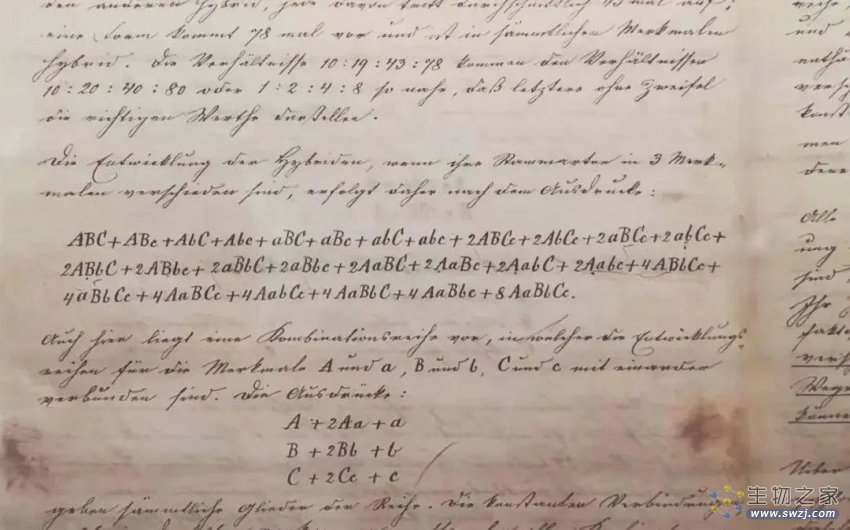 den anderen hybrid, jede davon tritt durchschnittlich 43 mal auf;
eine Form kommt 78 mal vor und ist in sämmtlichen Merkmalen
hybrid. Die Verhältnisse 10:19:43:78 kommen den Verhältnissen
10:20:40:80 oder 1:2:4:8 so nahe, daß letztere ohne Zweifel
die richtigen Werthe darstellen.
Die Entwicklung der Hybriden, wenn ihre Stammarten in 3 Merk-
malen verschieden sind, erfolgt daher nach dem Ausdrucke:
ABC+ABc+AbC+Abc+aBC+aBc+abC+abc+2ABCc+2AbCc+2aBCc+2abCc+
2ABbC+2ABbc+2aBbC+2aBbc+2AaBC+2AaBc+2AabC+2Aabc+4ABbCc+
4aBbCc+4AaBCc+4AabCc+4AaBbC+4AaBbc+8AaBbCc.
Auch hier liegt eine Kombinationsreihe vor, in welcher die Entwicklungs-
reihen für die Merkmale A und a, B und b, C und c mit einander
verbunden sind. Die Ausdrücke:
A+2Aa+a
B+2Bb+b
C+2Cc+c
geben sämmtliche Glieder der Reihe. Die konstanten Verbindungen
Alle
und
sind
Ihr
Wege
können
Ueber
生物之家
www.swzj.com